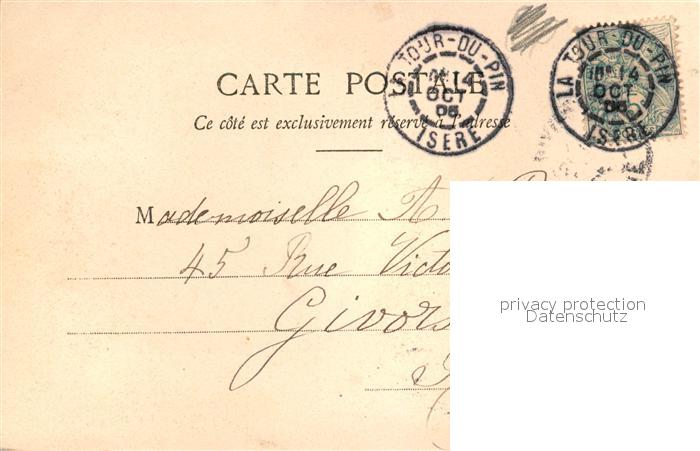 CARTE POSTALE
Ce côté est exclusivement réservé à l'adresse
LA TOUR-DU-PIN
14
OCT
05
ISERE
LA TOUR-DU-PIN
14
OCT
05
ISERE
Mademoiselle A
45 Rue Victo
Givors
privacy protection
Datenschutz